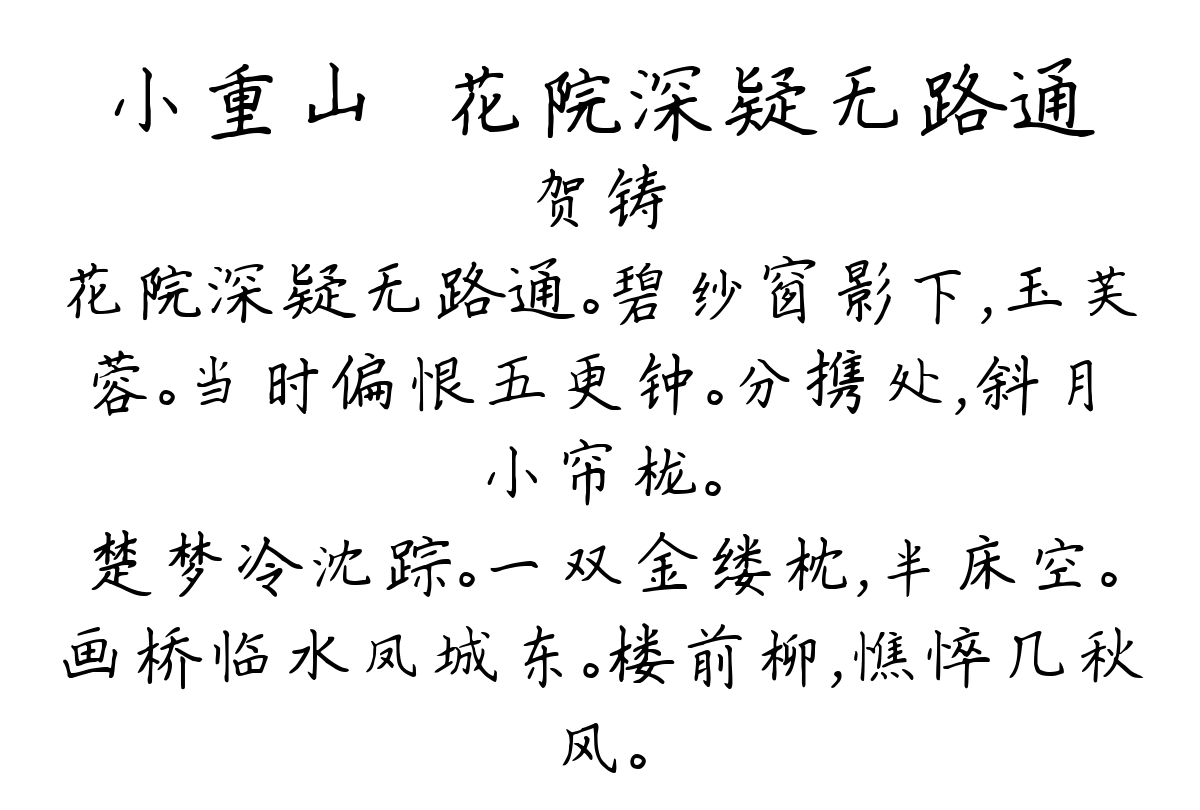 小重山 花院深疑无路通
贺铸
花院深疑无路通。碧纱窗影下,玉芙
蓉。当时偏恨五更钟。分携处,斜月
小帘栊。
楚梦冷沈踪。一双金缕枕,半床空。
画桥临水凤城东。楼前柳,憔悴几秋
风。